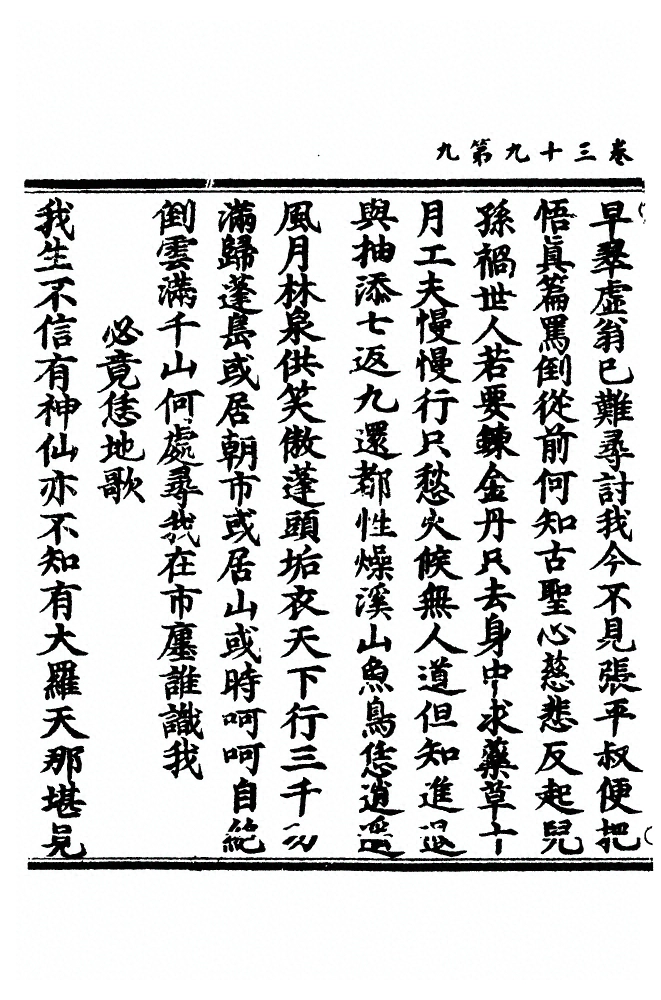 卷三十九第九
早翠虛翁已難尋討我今不見張平叔便把
悟真篇罵倒從前何知古聖心慈悲反起兒
孫禍世人若要鍊金丹只去身中求藥草十
月工夫慢慢行只愁火候無人道但知進退
與抽添七返九還都性燥溪山魚鳥恁逍遥
風月林泉供笑傲蓬頭垢衣天下行三千功
滿歸蓬島或居朝市或居山或時呵呵自絶
倒雲滿千山何處尋我在市廛誰識我
必竟恁地歌
我生不信有神仙亦不知有大羅天那堪見